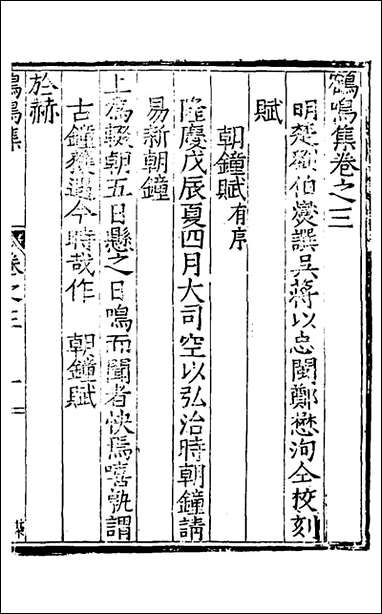 鶴鳴集卷之三
明楚顏伯燮譔吳蔣以忠閩鄭懋洵仝校刻
賦
朝鐘賦有序
隆慶戊辰夏四月大司空以弘治時朝鐘請
易新朝鐘
上爲輟朝五日懸之日鳴而聞者快焉嘻孰謂
古鐘獲遇今時哉作 朝鐘賦
於赫
鶴鳴集 卷之三 一